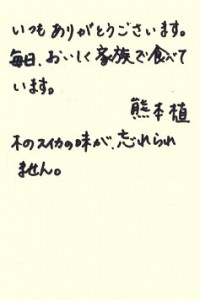 いつもありがとうございます。
毎日、おいしく家族で食べて
います。
熊本植
木のスイカの味が、忘れられ
ません。